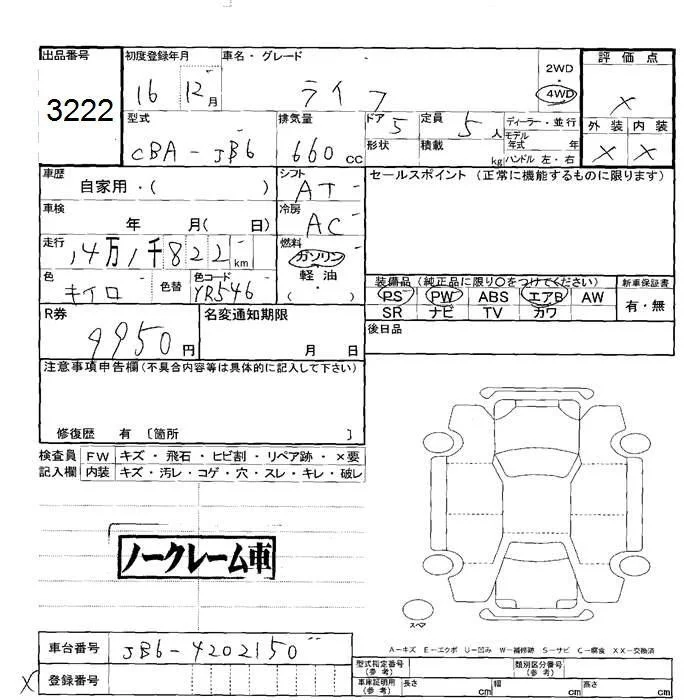 出品番号 初度登録年月 車名・グレード 2WD・4WD 評価点
3222 16 12月 ライフ ×
型式 排気量 ドア 5 定員 5人 ディーラー・並行 外装 内装
CBA-JB6 660cc 形状 積載 kg モデル年式 年 ハンドル 左・右 × ×
車歴 自家用・( ) シフト AT セールスポイント (正常に機能するものに限ります)
車検 年 月( 日) 冷房 AC
走行 14万1千822km 燃料 ガソリン
色 キイロ 色替 色コード YR546 軽油 ・( ) 装備品 (純正品に限り○をつけてください) 新車保証書
PS PW ABS エアB AW 有・無
SR ナビ TV カワ
R券 9950円 名変通知期限 月 日 後日品
注意事項申告欄(不具合内容等は具体的に記入して下さい)
修復歴 有 〔箇所 〕
検査員 FW キズ・飛石・ヒビ割・リペア跡・×要
記入欄 内装 キズ・汚レ・コゲ・穴・スレ・キレ・破レ
ノークレーム車
スペア
A-キズ E-エクボ U-凹み W-補修跡 S-サビ C-腐食 XX-交換済
車台番号 JB6-4202150
× 登録番号
型式指定番号(参考) 類別区分番号(参考)
車庫証明用(参考) 長さ cm 幅 cm 高さ cm